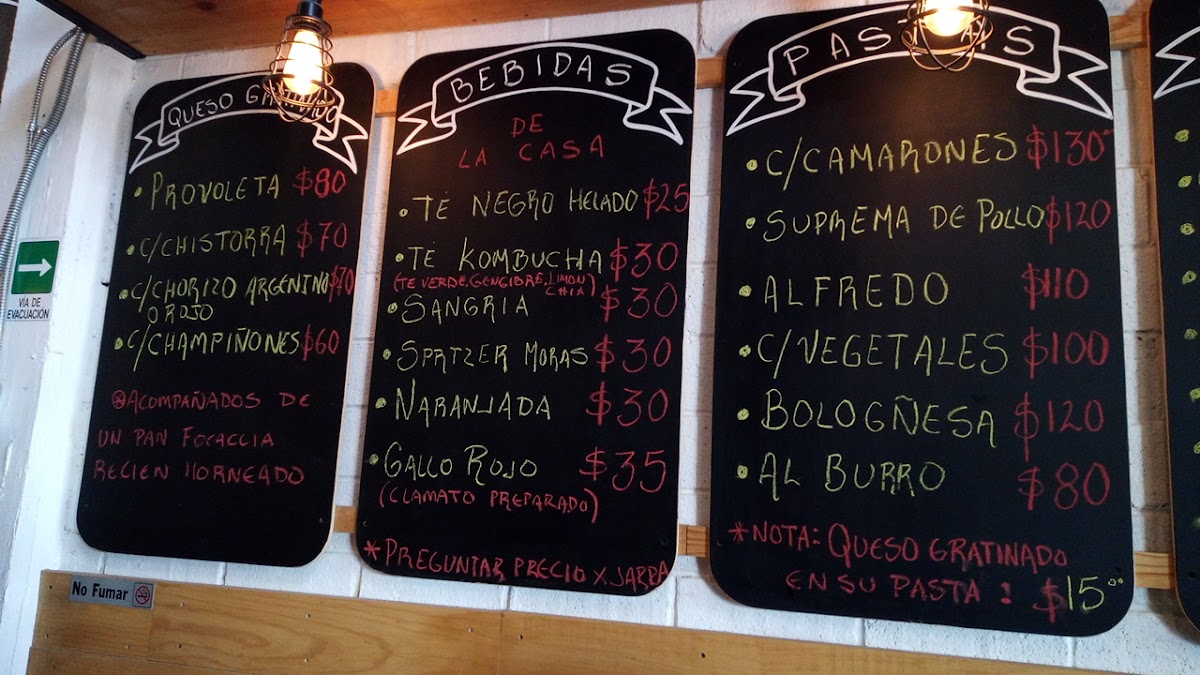 QUESO GRATINADO
• PROVOLETA $80
• C/CHISTORRA $70
• C/CHORIZO ARGENTINO $70
O ROJO
• C/CHAMPIÑONES $60
ACOMPAÑADOS DE
UN PAN FOCACCIA
RECIEN HORNEADO
BEBIDAS
DE
LA CASA
• TÉ NEGRO HELADO $25
• TÉ KOMBUCHA $30
(TE VERDE, GENGIBRE, LIMON
CHIA)
• SANGRIA $30
• SPRTZER MORAS $30
• NARANJADA $30
• GALLO ROJO $35
(CLAMATO PREPARADO)
* PREGUNTAR PRECIO X JARRA
PASTAS
• C/CAMARONES $130
• SUPREMA DE POLLO $120
• ALFREDO $110
• C/VEGETALES $100
• BOLOGÑESA $120
• AL BURRO $80
* NOTA: QUESO GRATINADO
EN SU PASTA ! $15.00
VIA DE
EVACUACIÓN
No Fumar